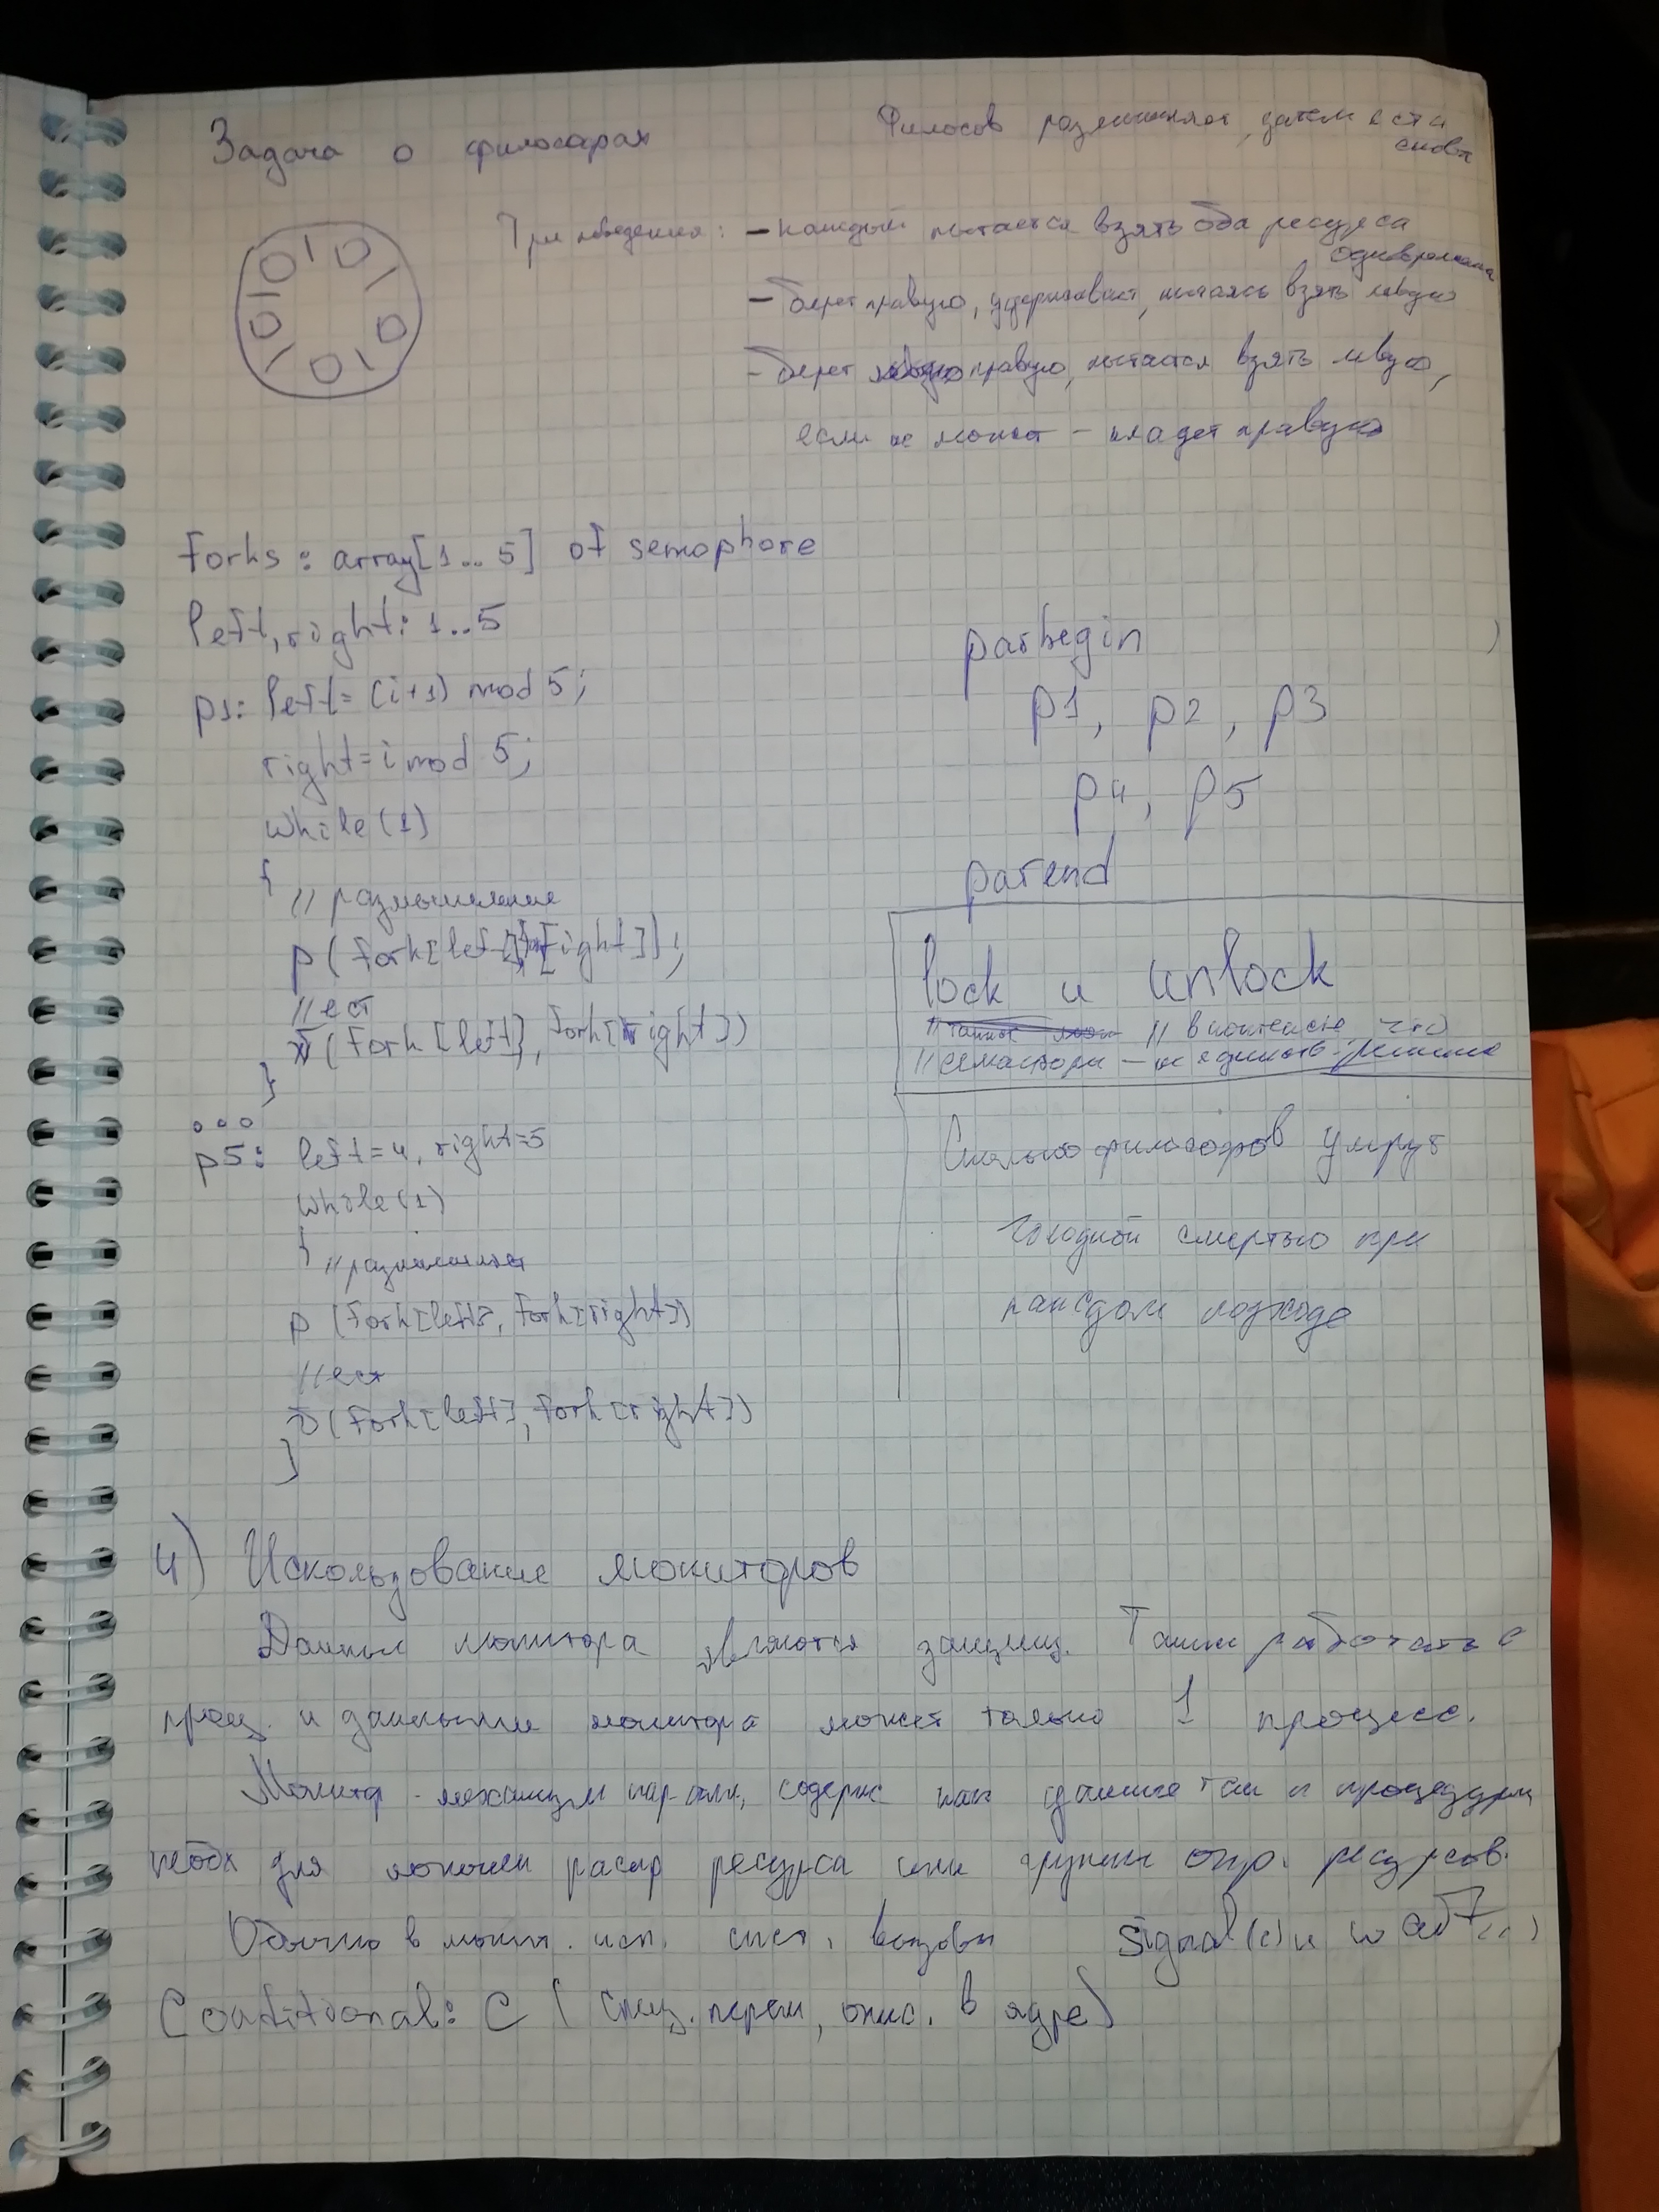 Задача о философах
Филосов размышляет, затем ест и
снова
Три поведения: – каждый пытается взять оба ресурса
одновременно
– берет правую, удерживает, пытаясь взять левую
– берет правую, пытается взять левую,
если не может – кладет правую
forks : array[1..5] of semophore
left, right: 1..5
p1: left= (i+1) mod 5;
right=i mod 5;
while(1)
{
// размышление
p(fork[left], [right]);
// ест
v(fork[left], fork[right])
}
...
p5: left=4, right=5
while(1)
{ // размышляет
p (fork[left], fork[right])
// ест
v(fork[left], fork[right])
}
parbegin
p1, p2, p3
p4, p5
parend
lock и unlock
// в контексте, что
// семафоры – не единств. решение
Сколько философов умрут
голодной смертью при
каждом подходе
4) Использование мониторов
Данные монитора являются защищ. Также работать с
проц. и данными монитора может только 1 процесс.
Монитор - механизм пар-лизм, содерж как данные так и процедуры
необх для распр ресурса или группы опр. ресурсов.
Обычно в монит. исп. сист. вызовы signal(c) и wait(c)
Conditional: C (спец. перем, опис. в ядре)